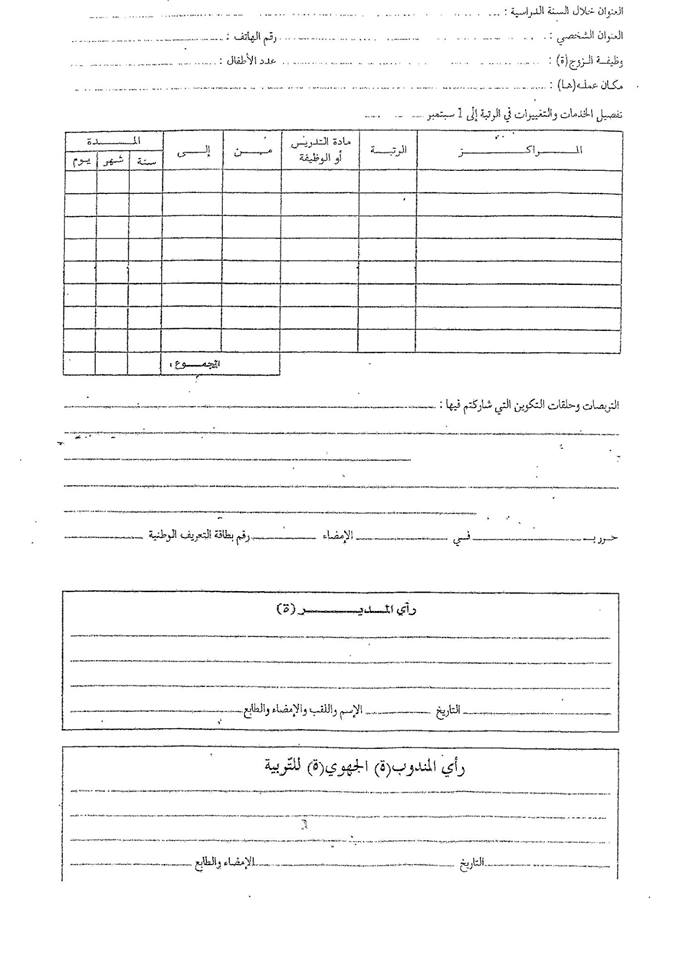 العنوان خلال السنة الدراسية :
العنوان الشخصي : رقم الهاتف :
وظيفة الزوج(ة) : عدد الأطفال :
مكان عمله(ها) :
تفصيل الخدمات والتغييرات في الرتبة إلى 1 سبتمبر
المراكز الرتبة مادة التدريس أو الوظيفة من إلى المدة
سنة شهر يوم
المجموع :
التربصات وحلقات التكوين التي شاركتم فيها :
حرر بـ في الإمضاء رقم بطاقة التعريف الوطنية
رأي المدير (ة)
التاريخ الإسم واللقب والإمضاء والطابع
رأي المندوب(ة) الجهوي(ة) للتّربية
التاريخ الإمضاء والطابع